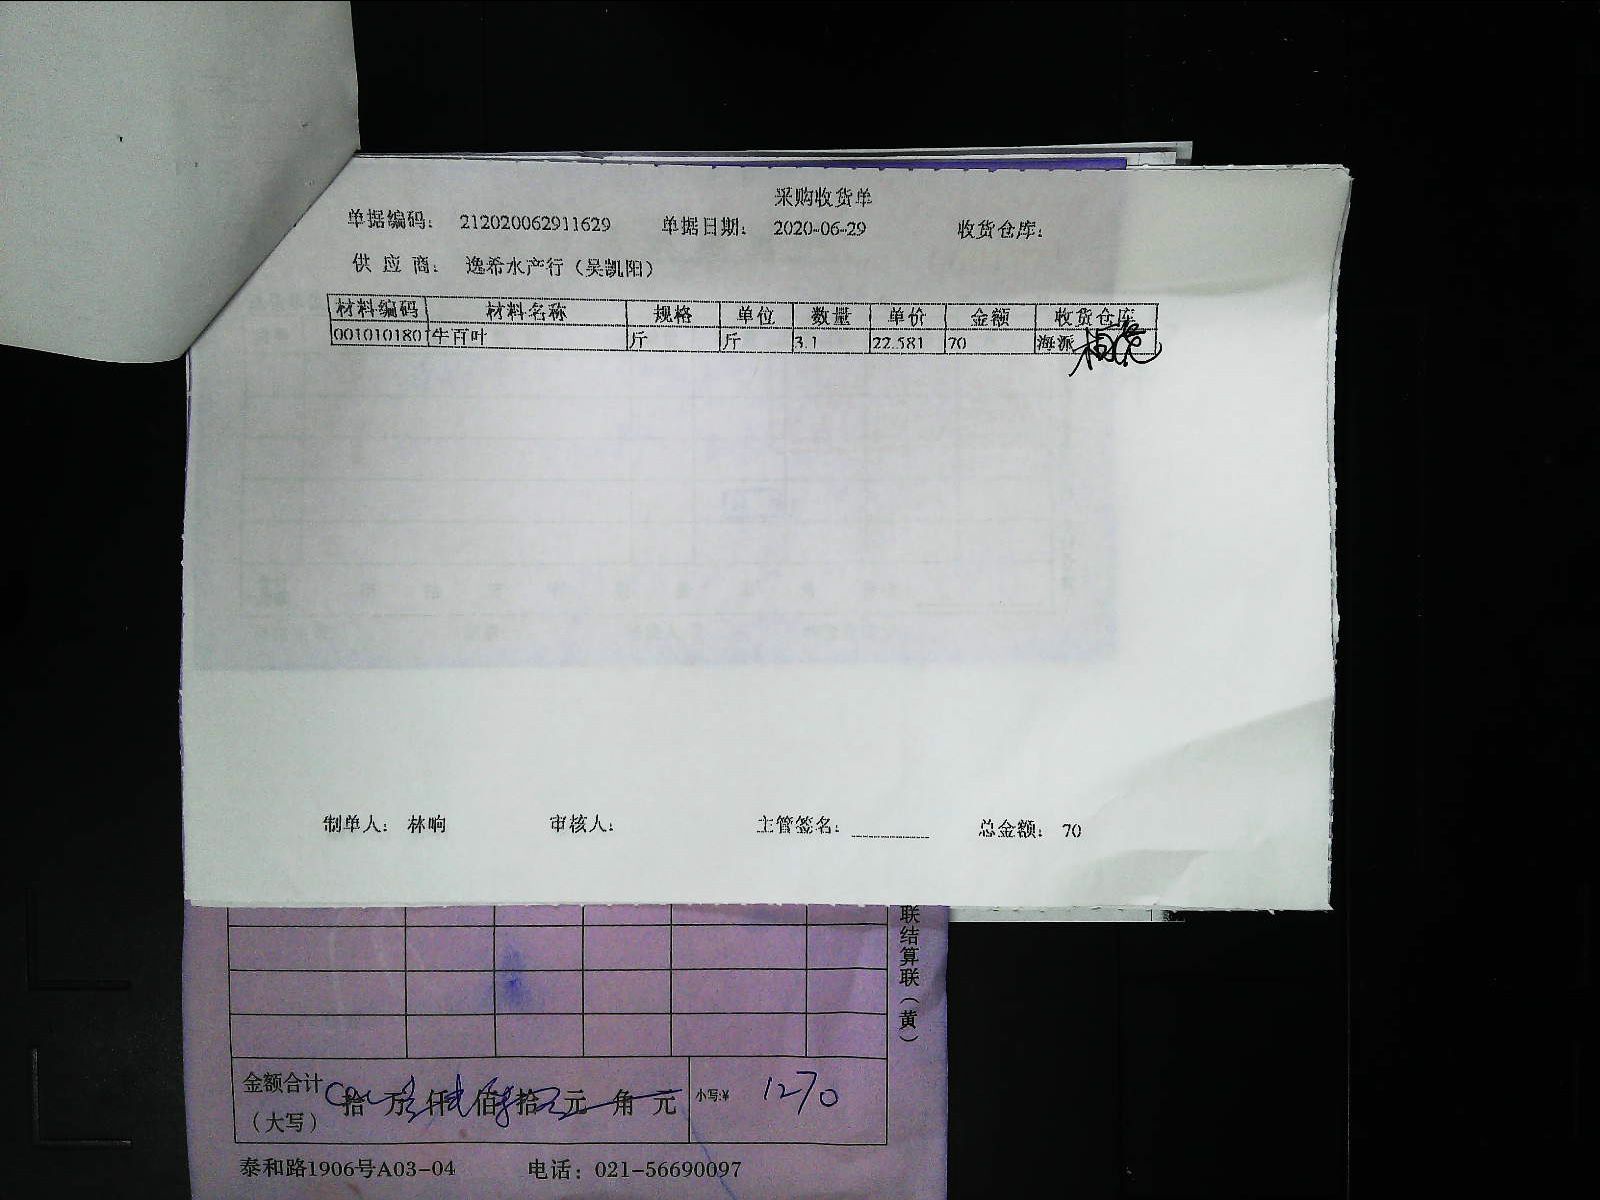 采购收货单
单据编码： 212020062911629 单据日期： 2020-06-29 收货仓库：
供 应 商： 逸希水产行（吴凯阳）
材料编码 材料名称 规格 单位 数量 单价 金额 收货仓库
0010101801 牛百叶 斤 斤 3.1 22.581 70 海派
制单人： 林响 审核人： 主管签名： 总金额： 70
联结算联（黄）
金额合计（大写） 拾 万 仟 佰 拾 元 角 元 小写:¥ 1270
泰和路1906号A03-04 电话：021-56690097